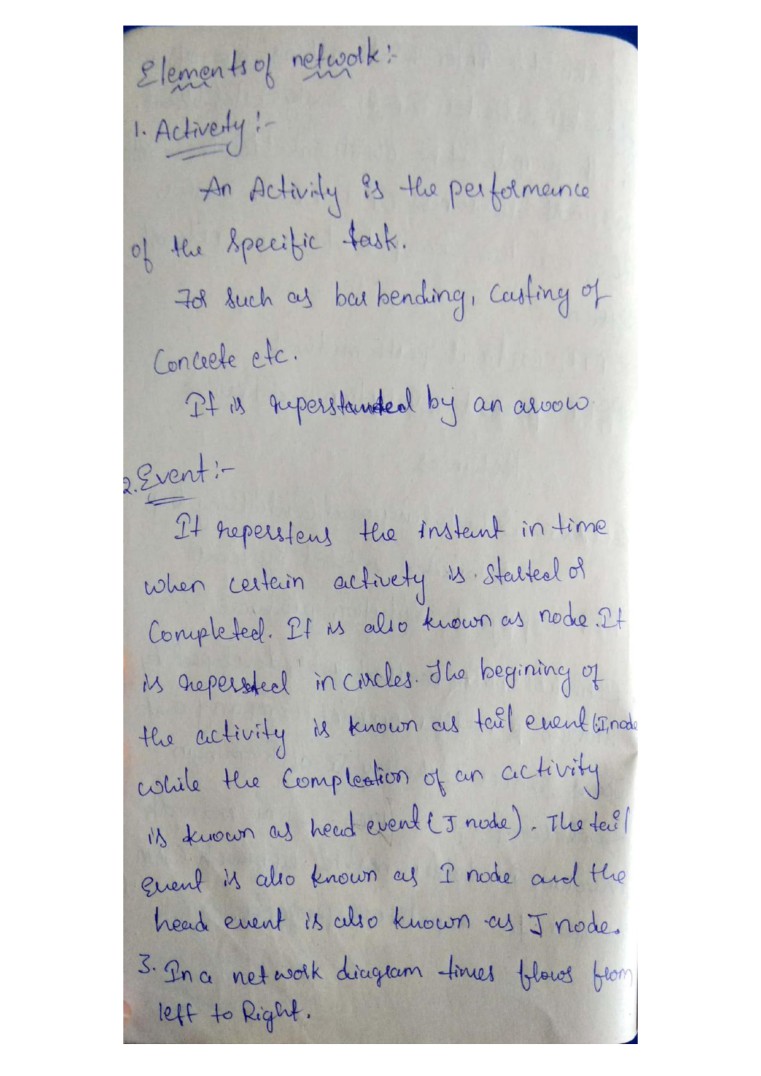 Elements of network:-
1. Activety :-
An Activity is the performance
of the Specific task.
For Such as bar bending, Casting of
Concrete etc.
It is reperstanded by an arrow
2. Event :-
It reperstens the instant in time
when certain activety is Started or
Completed. It is also known as node. It
is repersted in circles. The begining of
the activity is known as tail event (I, node
while the Completion of an activity
is known as head event (J node). The tail
Event is also known as I node and the
head event is also known as J node.
3. In a network diagram times flows from
left to Right.